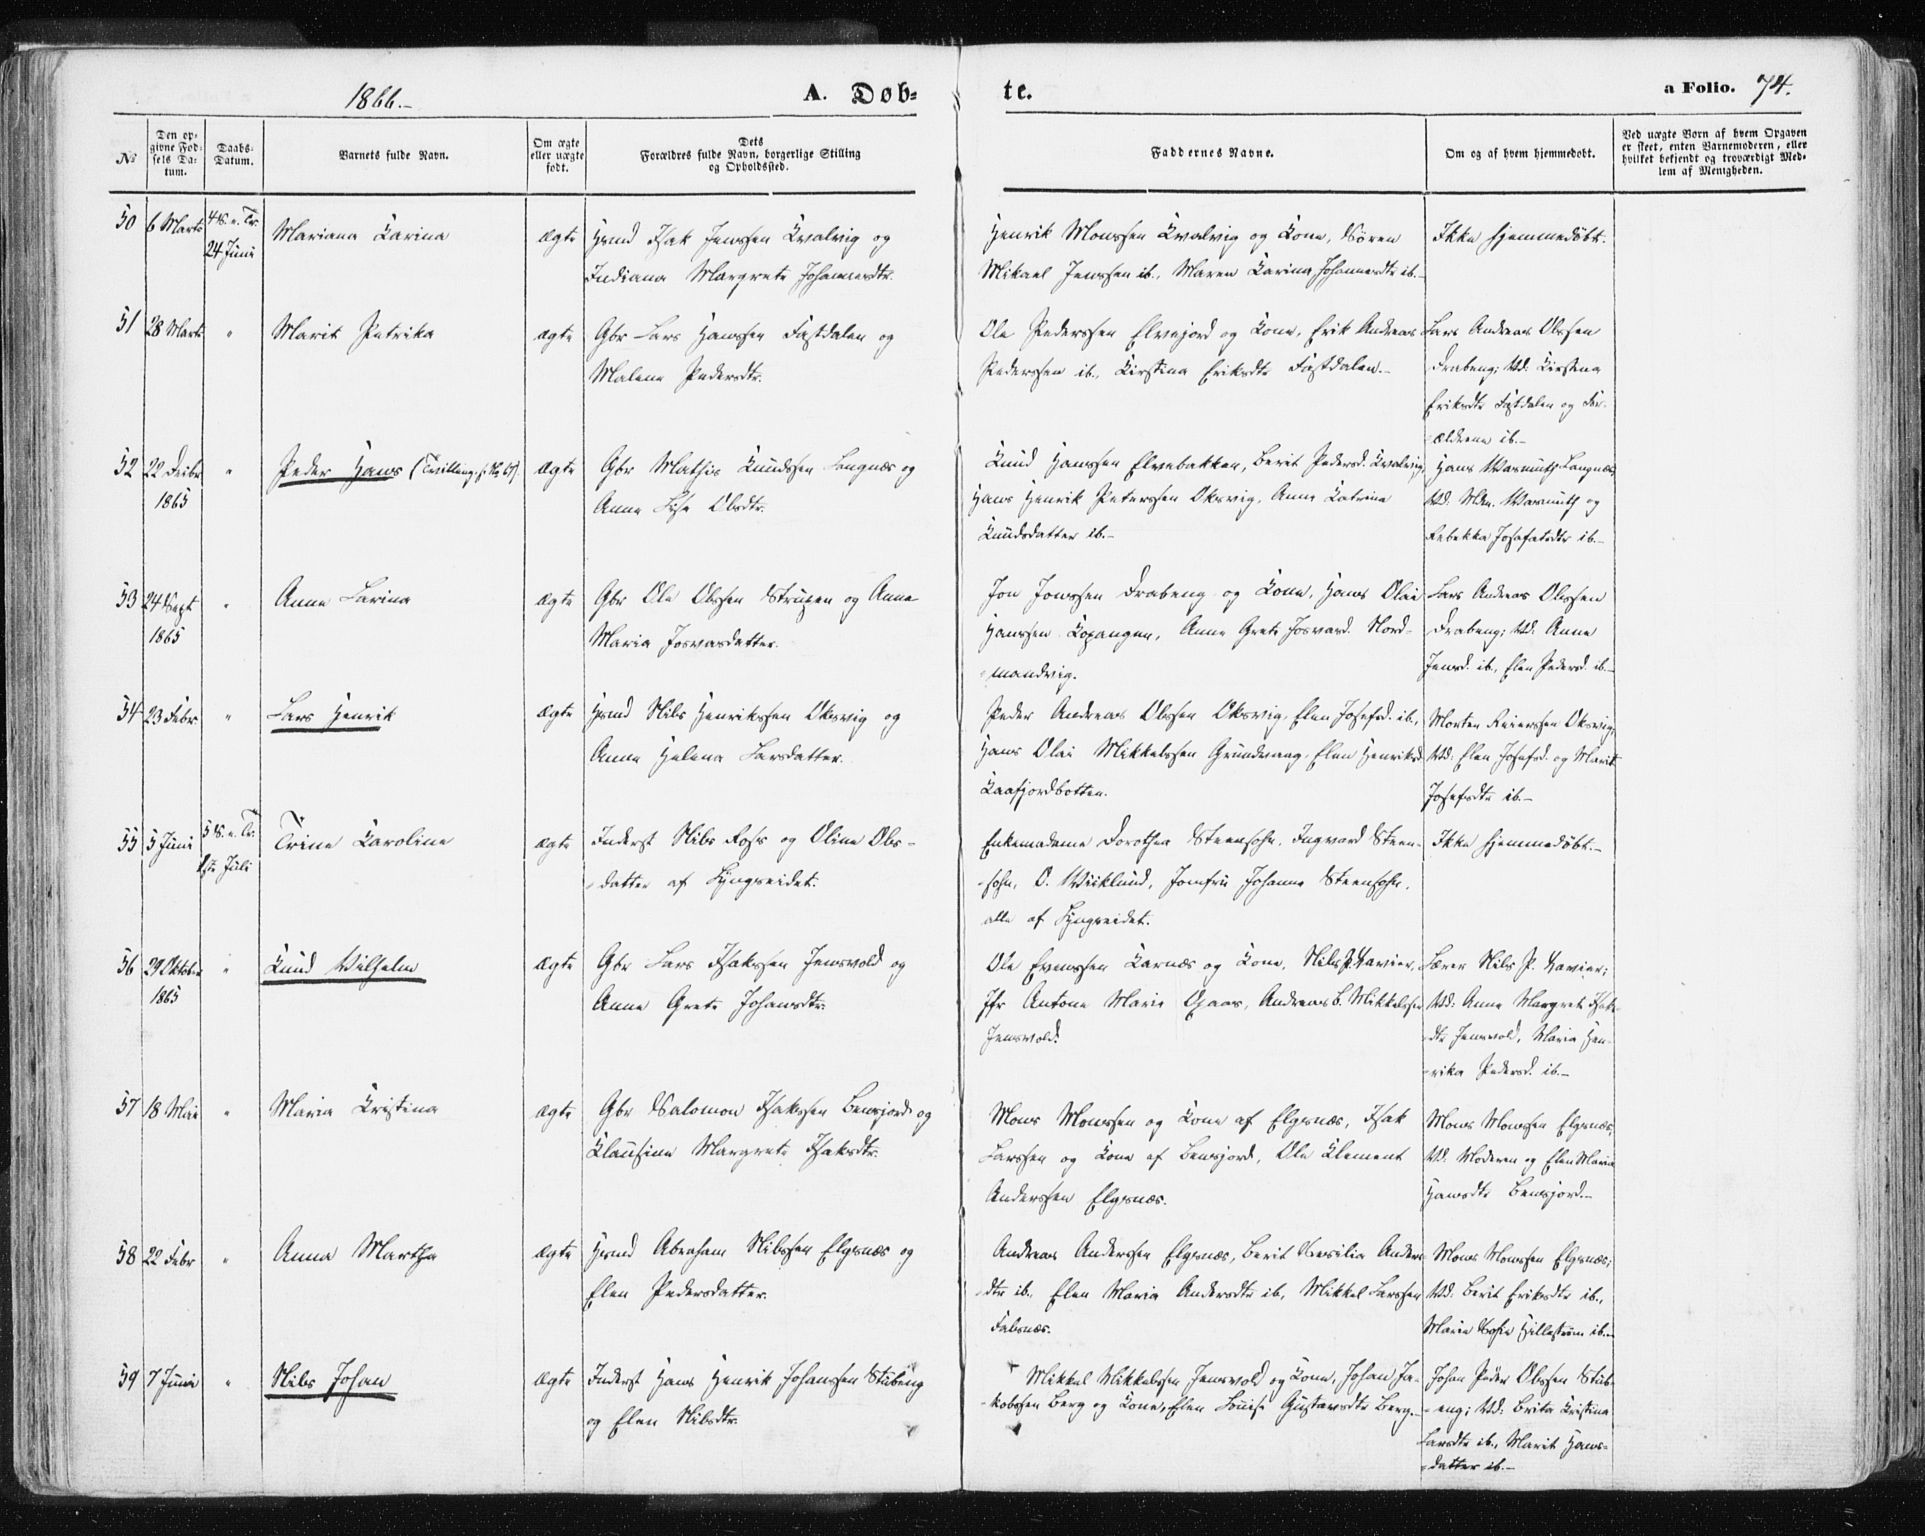 1866.-
A. Døb-
te.
a Folio. 74.
No
Den op-
givne Fød-
sels Da-
tum.
Daabs-
Datum.
Barnets fulde Navn.
Om ægte
eller uægte
født.
Dets
Forældres fulde Navn, borgerlige Stilling
og Opholdssted.
Faddernes Navne.
Om og af hvem hjemmedøbt.
Ved uægte Børn af hvem Opgaven
er skeet, enten Barnemoderen, eller
hvilket bekjendt og troværdigt Med-
lem af Menigheden.
50 6 Marts 4 S. e. Tr.
24 Juni
Mariana Karina
ægte
Hmd Isak Jenssen Kvalvig og
Indiana Margrete Johannesdtr.
Henrik Monssen Kvalvig og Kone, Sören
Mikael Jenssen ib., Maren Karina Johannesdtr ib.-
Ikke hjemmedøbt.
51 28 Marts "
Marit Petrika
ægte
Gbr Lars Hanssen Fastdalen og
Malene Pedersdtr.
Ole Pederssen Elvejord og Kone, Erik Andreas
Pederssen ib., Kirstina Eriksdtr Fastdalen.-
Lars Andreas Olssen
Drabeng; Vd: Kirstina
Eriksdtr Fastdalen og For-
ældrene ib.-
52 22 Decbr "
1865
Peder Hans (Tvilling, s. No 67)
ægte
Gbr Mathis Knudssen Langnæs og
Anne Lise Olsdtr.
Knud Hanssen Elvebakken, Berit Pedersd. Kvalvig,
Hans Henrik Peterssen Oksvig, Anne Katrine
Knudsdatter ib.-
Hans Wasmuth Langnæs,
Vd: Mdm. Wasmuth og
Rebekka Josefatsdtr ib.-
53 24 Sept "
1865
Anne Larina
ægte
Gbr Ole Olssen Strupen og Anne
Maria Josvasdatter.
Jon Jonssen Drabeng og Kone, Hans Olai
Hanssen Kopangen, Anne Grete Josvasd. Nord-
-mandvig.
Lars Andreas Olssen
Drabeng; Vd: Anne
Jensd. ib., Elen Pedersd. ib.-
54 23 Febr "
Lars Henrik
ægte
Hmd Nils Henrikssen Oksvig og
Anne Helena Larsdatter.
Peder Andreas Olssen Oksvig, Elen Josefsd. ib.,
Hans Olai Mikkelssen Grundvaag, Elen Henriksd.
Kaafjordbotten.
Morten Reierssen Oksvig;
Vd: Elen Josefsd. og Marit
Josefsdtr ib.-
55 5 Juni 5 S. e. Tr.
1ste Juli
Trine Karoline
ægte
Inderst Nils Rosis og Oline Ols-
-datter af Lyngseidet.
Enkemadame Dorothea Steensohn, Ingvard Steen-
-sohn, O. Wiiklund, Jomfru Johanne Steensohn,
alle af Lyngseidet.
Ikke hjemmedøbt.-
56 29 Oktober "
1865
Knud Vilhelm
ægte
Gbr Lars Isakssen Jensvold og
Anne Grete Johansdtr.
Ole Evenssen Karnæs og Kone, Nils P. Xavier,
Jfr Antone Marie Gjaas, Andreas B. Mikkelssen
Jensvold.
Lærer Nils P. Xavier;
Vd: Anne Margrete Isaks-
-dtr Jensvold, Maria Hen-
-rika Pedersd. ib.-
57 18 Mai "
Maria Kristina
ægte
Gbr Salomon Isakssen Bensjord og
Klausine Margrete Isaksdtr.
Mons Monssen og Kone af Elgsnæs, Isak
Larssen og Kone af Bensjord, Ole Klement
Anderssen Elgsnæs.
Mons Monssen Elgsnæs;
Vd. Moderen og Elen Maria
Hansdtr Bensjord.-
58 22 Febr "
Anna Martha
ægte
Hmd Abraham Nilssen Elgsnæs og
Elen Pedersdatter.
Andreas Anderssen Elgsnæs, Berit Cecilia Anders-
-dtr ib., Elen Maria Andersdtr ib., Mikkel Larssen
Falsnæs.
Mons Monssen Elgsnæs;
Vd. Berit Eriksdtr ib.,
Maria Sofie Hillestrøm ib.-
59 7 Juni "
Nils Johan
ægte
Inderst Hans Henrik Johanssen Stubeng
og Elen Nilsdtr.
Mikkel Mikkelssen Jensvold og Kone, Johan Ja-
-kobssen Berg og Kone, Elen Louise Gustavsdtr Berg.-
Johan Peder Olssen Stub-
-eng; Vd: Brita Kristina
Larsdtr ib., Marit Hans-
-datter ib.-